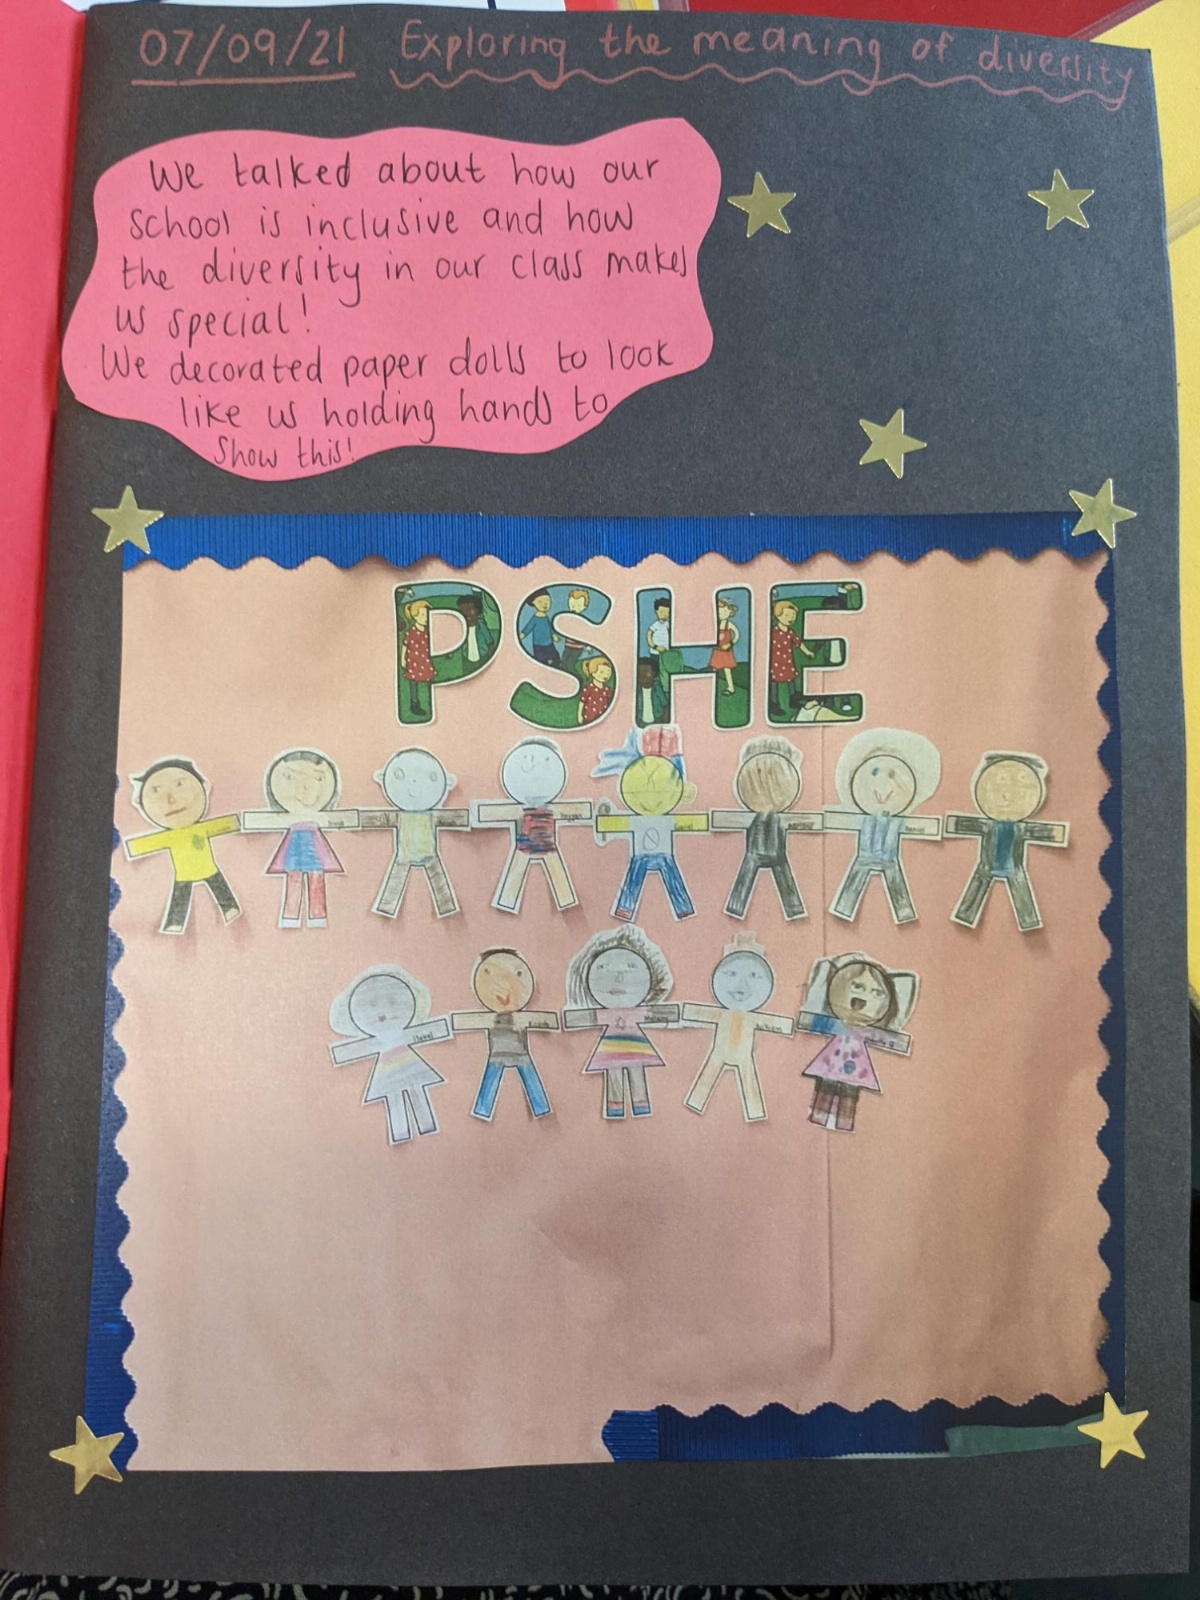 07/09/21 Exploring the meaning of diversity
We talked about how our
school is inclusive and how
the diversity in our class makes
us special!
We decorated paper dolls to look
like us holding hands to
show this!
PSHE